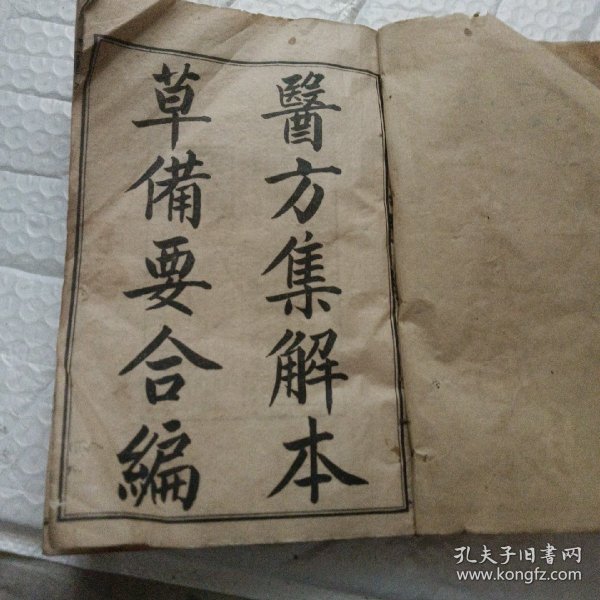 醫方集解本
草備要合編
孔夫子旧書网
www.kongfz.com